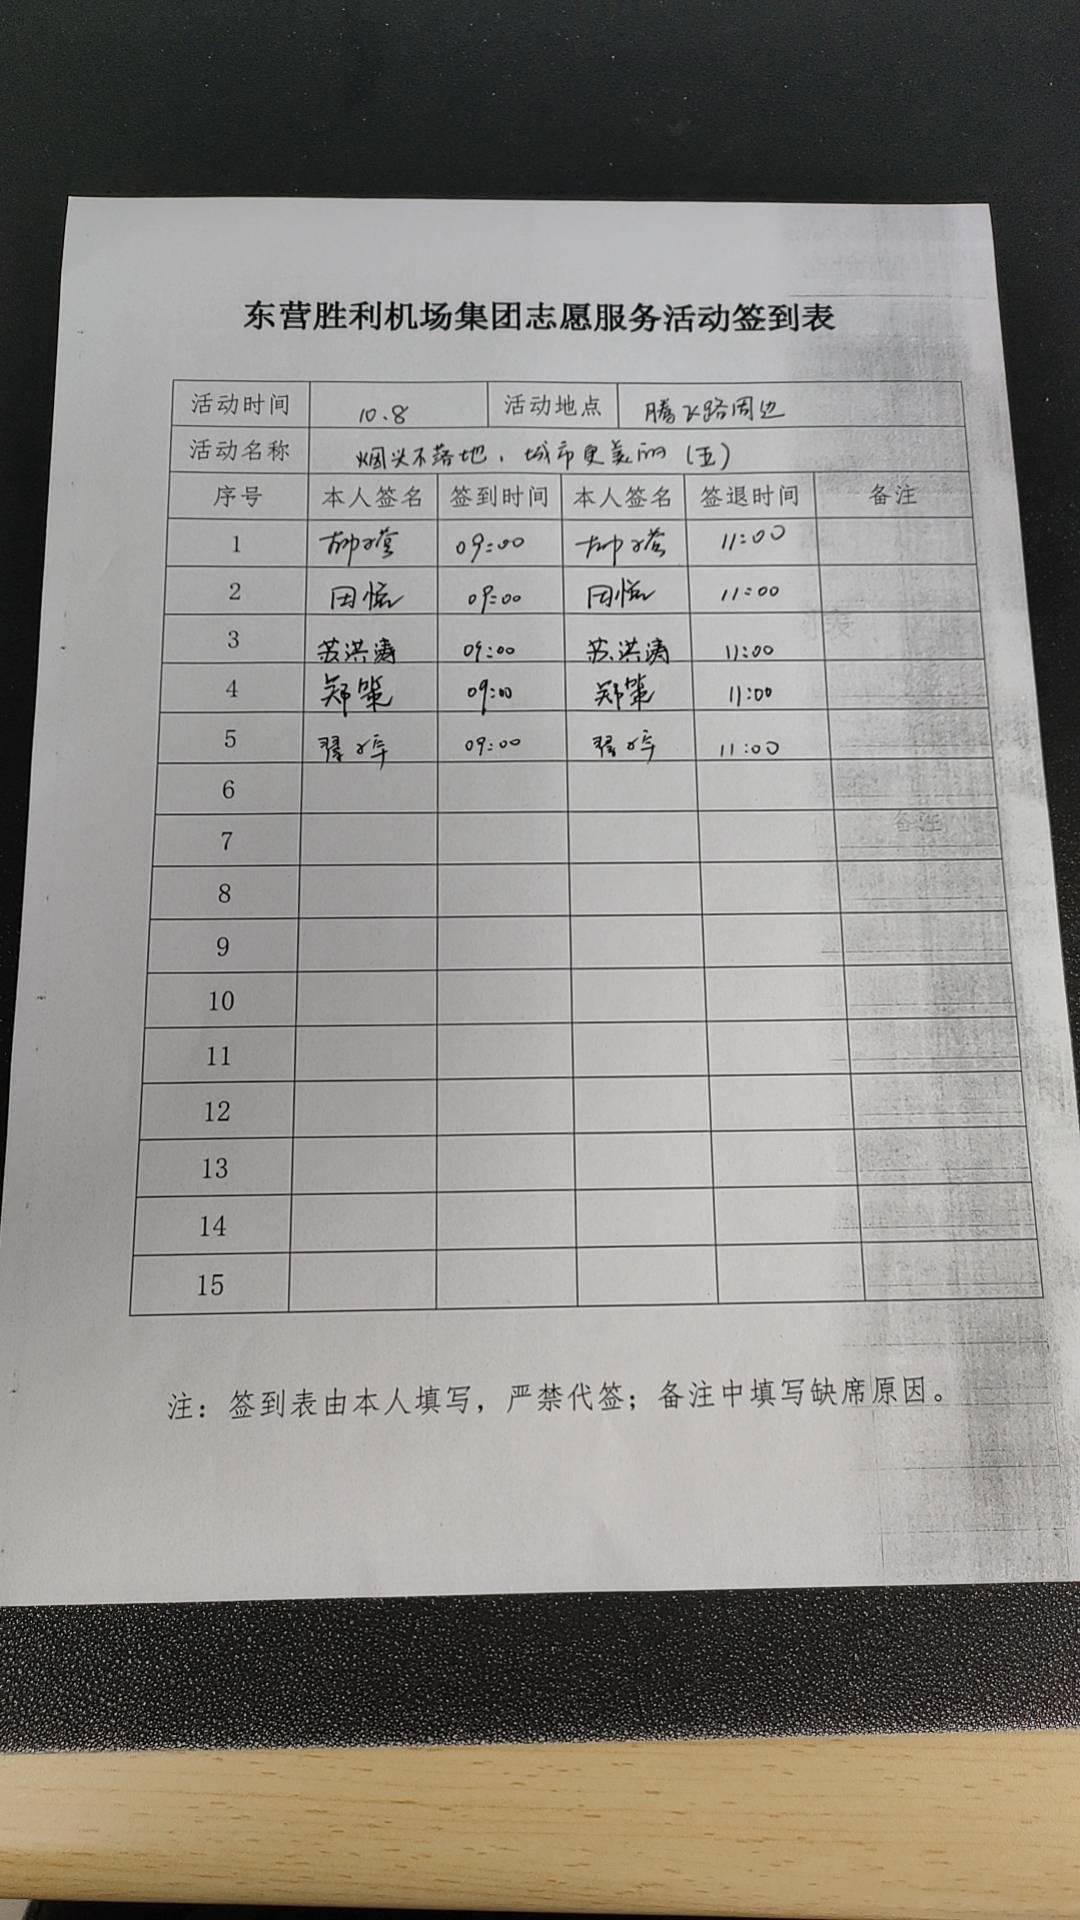 东营胜利机场集团志愿服务活动签到表
活动时间 10.8 活动地点 腾飞路周边
活动名称 烟头不落地,城市更美丽(五)
序号 本人签名 签到时间 本人签名 签退时间 备注
1 09:00 11:00
2 田恬 09:00 田恬 11:00
3 苏洪涛 09:00 苏洪涛 11:00
4 郑策 09:00 郑策 11:00
5 09:00 11:00
6
7
8
9
10
11
12
13
14
15
注：签到表由本人填写，严禁代签；备注中填写缺席原因。